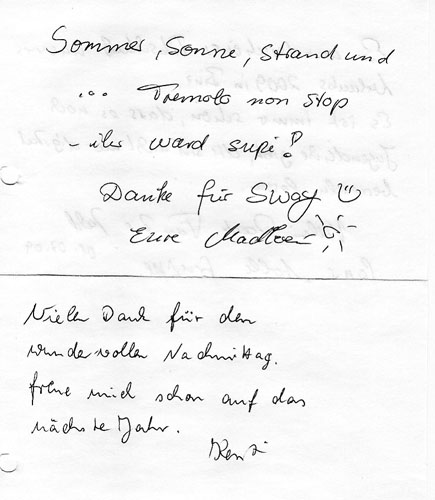 Sommer, Sonne, Strand und
... Tremolo non stop
- ihr ward supi!
Danke für Sway ☺
Eure
Vielen Dank für den
wundervollen Nachmittag.
freue mich schon auf das
nächste Jahr.